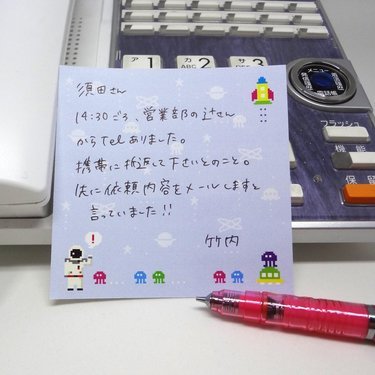 ア 1
カ ABC 2
サ 3
メニュー
電話帳
フラッシュ
機能
保留
須田さん
14:30ごろ、営業部の辻さん
からTelありました。
携帯に折返して下さいとのこと。
先に依頼内容をメールしますと
言っていました!!
竹内
!